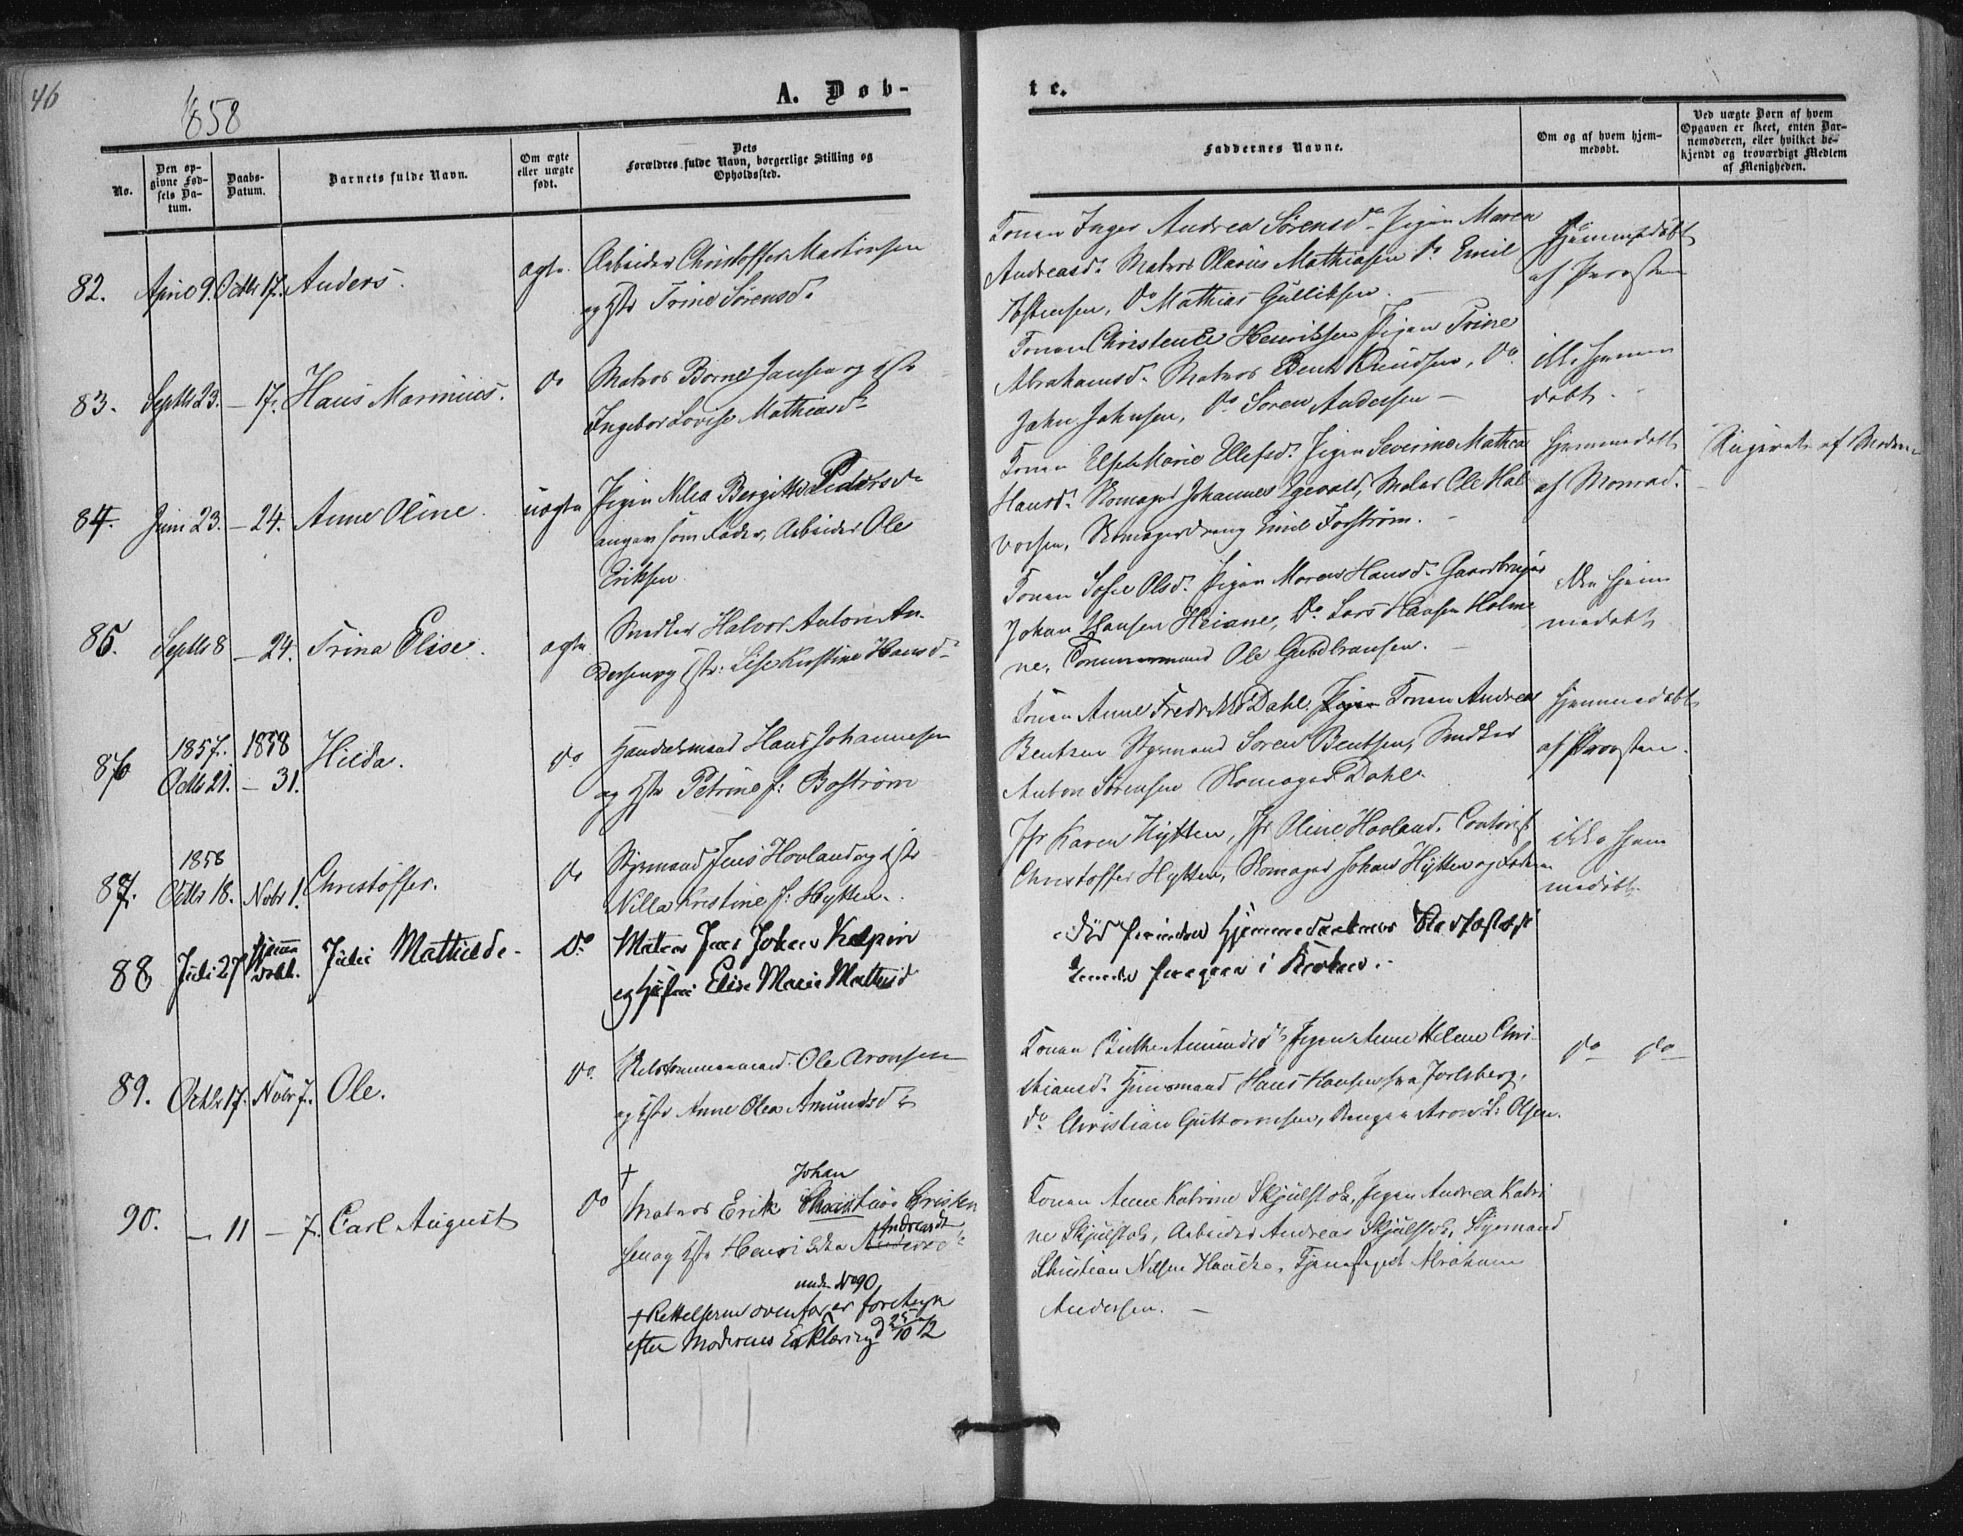 46
1858
A. Døb-
te.
No.
Den op-
givne Fød-
sels Da-
tum.
Daabs-
Datum.
Barnets fulde Navn.
Om ægte
eller uægte
født.
Dets
Forældres fulde Navn, borgerlige Stilling og
Opholdssted.
Faddernes Navne.
Om og af hvem hjem-
medøbt.
Ved uægte Børn af hvem
Opgaven er skeet, enten Bar-
nemoderen, eller hvilket be-
kjendt og troværdigt Medlem
af Menigheden.
82. April 9. Octbr 17. Anders. ægte Arbeider Christoffer Martinsen
og Hstr Trine Sørensd.
Konen Inger Andrea Sørensd. Pigen Maren
Andreasd. Matros Olavus Mathiasen Do Emil
Do Mathias Gulliksen.
Hjemmedøbt
af Provsten
83. Septbr 23. – 17. Hans Marinius. Do Matros Børre Jansen og Hstr
Ingebor Lovise Mathiasd.
Konen Christence Henriksen Pigen Trine
Abrahamsd. Matros Bent Knudsen, Do
John Johnsen, Do Søren Andersen –
ikke hjemme
døbt.
84. Juni 23. – 24. Anne Oline. uægte Pigen Nilia Bergitte Pedersd.
angav som Fader, Arbeider Ole
Eriksen.
Konen Elise Marie Ellefsd. Pigen Severine Mathea
Hansd. Skomager Johannes Egevold, Maler Ole Hal
vorsen, Skomagerdreng Emil Forstrøm. –
hjemmedøbt
af Monrad.
Angivet af Moderen
85. Septbr 8 – 24. Trina Elise. ægte Snedker Halvor Anton An-
dersen og Hstr: Lise Kirstine Hansd.
Konen Sofie Olsd. Pigen Maren Hansd. Gaardbruger
Johan Hansen Heiane, Do Lars Hansen Holme
ne, Ole Guldbransen. –
ikke hjem
medøbt
86 1857. Octbr 21. 1858 – 31. Hilda. Do Handelsmand Hans Johannesen
og Hstr Petrine f: Bostrøm
Konen Anne Fredrikke Dahl, Pigen Konen Andrea
Bentsen Styrmand Søren Bentsen, Snedker
Anton Sørensen Skomager Dahl.
hjemmedøbt
af Provsten.
87. 1858 Octbr 18. Novbr 1. Christoffer. Do Styrmand Jens Hovland og Hstr
Nilla Kristine f: Hytten.
Jfr Karen Hytten, Jfr Oline Hovland, Contorist
Christoffer Hytten, Skomager Johan Hytten og Faderen
ikke hjem
medøbt
88 Juli 27 Hjemme
døbt. Julie Mathilde. Do Matros Jens Johan Kolpin
og Hustru Elise Marie Mathisd
Død forinden Hjemmedaabens Stadfæstelse
kunde foregaa i Kirken. –
89. Octbr 17. Novbr 7. Ole. Do Ole Aronsen
og Hstr Anne Olea Amundsd.
Konen Amundsd. Pigen Anne Helene Chri-
stiansd. Huusmand Hans Hansen fra Jarlsberg,
Do Christian Guttormsen, Drengen Aron S: Olsen.
Do Do
90. – 11 – 7. Carl August Do + Johan
Matros Erik Christian Cristen
sen og Hstr Henrikka Andersd.
Andreasdt
under No 90
+ Rettelserne ovenfor er foretagn
efter Moderens Erklæring d 25/10 12
Konen Anne Katrine Skjulstok, Pigen Andrea Katri
ne Skjulstok, Arbeider Andreas Skjulstok, Styrmand
Christian Nilsen Haacke, Abraham
Andersen. –